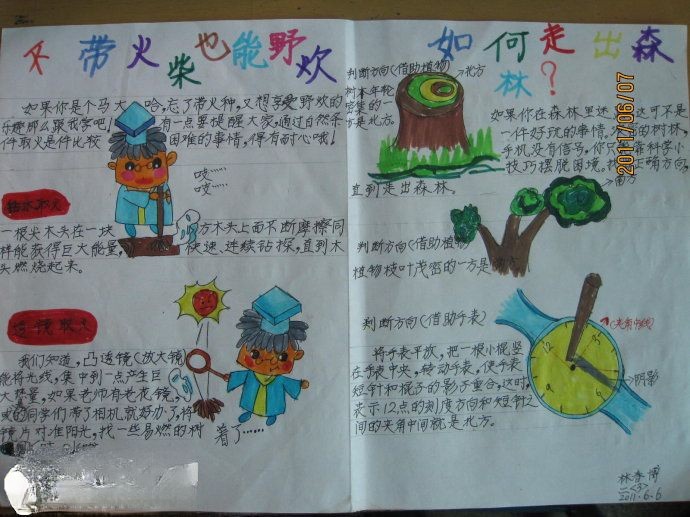 不带火柴也能野炊
如果你是个马大哈,忘了带火种,又想享受野炊的
乐趣那么跟我学吧!有一点要提醒大家,通过自然条
件取火是件比较困难的事情,得有耐心哦!
吱……
吱……
钻木取火
一根尖木头在一块方木头上面不断摩擦同
样能获得巨大能量,快速、连续钻探,直到木
头燃烧起来。
透镜取火
我们知道,凸透镜(放大镜)
能将光线,集中到一点产生巨
大热量,如果老师有老夜镜,
的同学们带了相机就好办了,将
镜片对准阳光,找一些易燃的树
着了……
如何走出森林?
判断方向(借助植物)
北方
树木年轮
密集的一
方是北方。
如果你在森林里迷
这可不是
一件好玩的事情,
的树林,
手机没有信号,你只
靠科学小
技巧摆脱困境。找
正确方向,
直到走出森林。
南方
判断方向(借助植物
植物枝叶茂密的一方是南方
判断方向(借助手表)
(夹角中线)
将手表平放,把一根小棍竖
在手表中央,转动手表,使手表
短针和棍子的影子重合,这时,
表示12点的刻度方向和短针之
间的夹角中间就是北方。
12
3
6
9
阴影
林春博
二<3>
2011.6.6
2011/06/07